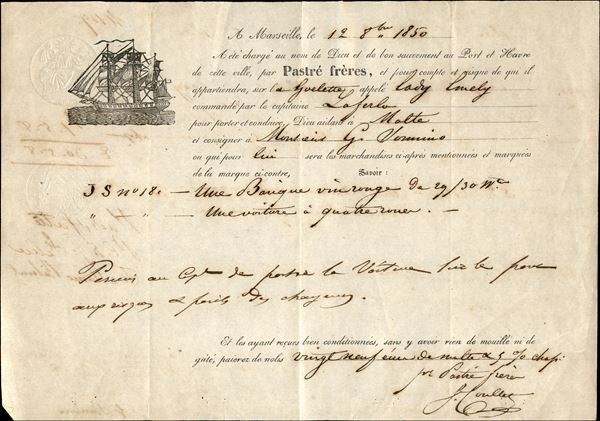 A Marseille, le 12 8bre 1850
A été chargé au nom de Dieu et de bon sauvement au Port et Havre
de cette ville, par Pastré frères, et pour compte et risque de qui il
appartiendra, sur la Goelette appelé Lady Emely
commandé par le capitaine
pour porter et conduire, Dieu aidant à Malte
et consigner à Monsieur G.
ou qui pour lui sera les marchandises ci-après mentionnées et marquées
de la marque ci-contre, Savoir :
J S no 18. — Une Barrique vin rouge de 29/30 
" " — Une voiture à quatre roues. —
Permis au Cpe de porter la Voiture sur le pont
aux risques & périls des chargeurs.
Et les ayant reçues bien conditionnées, sans y avoir rien de mouillé ni de
gâté, paierez de nolis vingt neuf écus de malte & 5 % chap:
pr Pastré frères